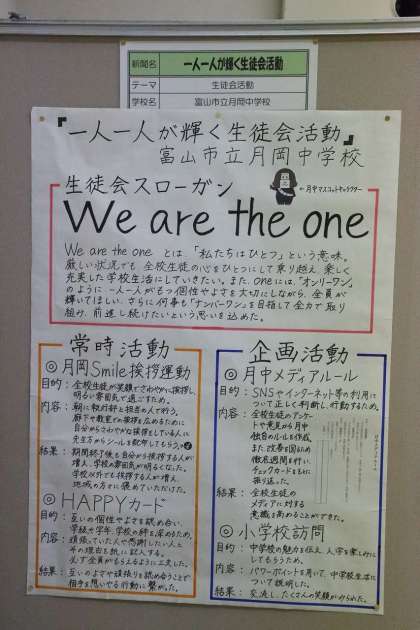 新聞名 一人一人が輝く生徒会活動
テーマ 生徒会活動
学校名 富山市立月岡中学校
『一人一人が輝く生徒会活動』
富山市立月岡中学校
生徒会スローガン
←月中マスコットキャラクター
We are the one
We are the one とは「私たちはひとつ」という意味。
厳しい状況でも全校生徒の心をひとつにして乗り越え、楽しく
充実した学校生活にしていきたい。また、oneには、「オンリーワン」
のように一人一人がもつ個性やよさを大切にしながら、全員が
輝いてほしい、さらに何事も「ナンバーワン」を目指して全力で取り
組み、前進し続けたいという思いを込めた。
常時活動
◎月岡Smile挨拶運動
目的：全校生徒が笑顔でさわやかに挨拶し、
明るい雰囲気で過ごすため。
内容：朝に執行部と担当の人で行う。
廊下や教室での挨拶を広めるために
自分からさわやかな挨拶をしている人に
先生方からシールを配布してもらう。
結果：期間終了後も自分から挨拶する人が
増え、学校の雰囲気が明るくなった。
学校以外でも挨拶する人が増え、
地域の方々に褒めていただけた。
◎HAPPYカード
目的：互いの個性やよさを認め合い、
学級や学年、学校の絆を深めるため。
内容：頑張っていた人や感謝したい人と
その理由を紙に記入する。
必ず全員がもらえるように工夫した。
結果：互いのよさや頑張りを認め合うことで
相手を思いやる行動に繋がった。
企画活動
◎月中メディアルール
目的：SNSやインターネット等の利用に
ついて正しく判断し、行動するため。
内容：全校生徒のアンケー
トや意見から月中
独自のルールを作成。
また改善を図るため
徹底週間を行い、
チェックカードをもとに
振り返った。
結果：全校生徒の
メディアに対する
意識を高めることができた。
◎小学校訪問
目的：中学校の魅力を伝え、入学を楽しみにし
てもらうため。
内容：パワーポイントを用いて、中学校生活に
ついて説明した。
結果：交流し、たくさんの笑顔がみられた。